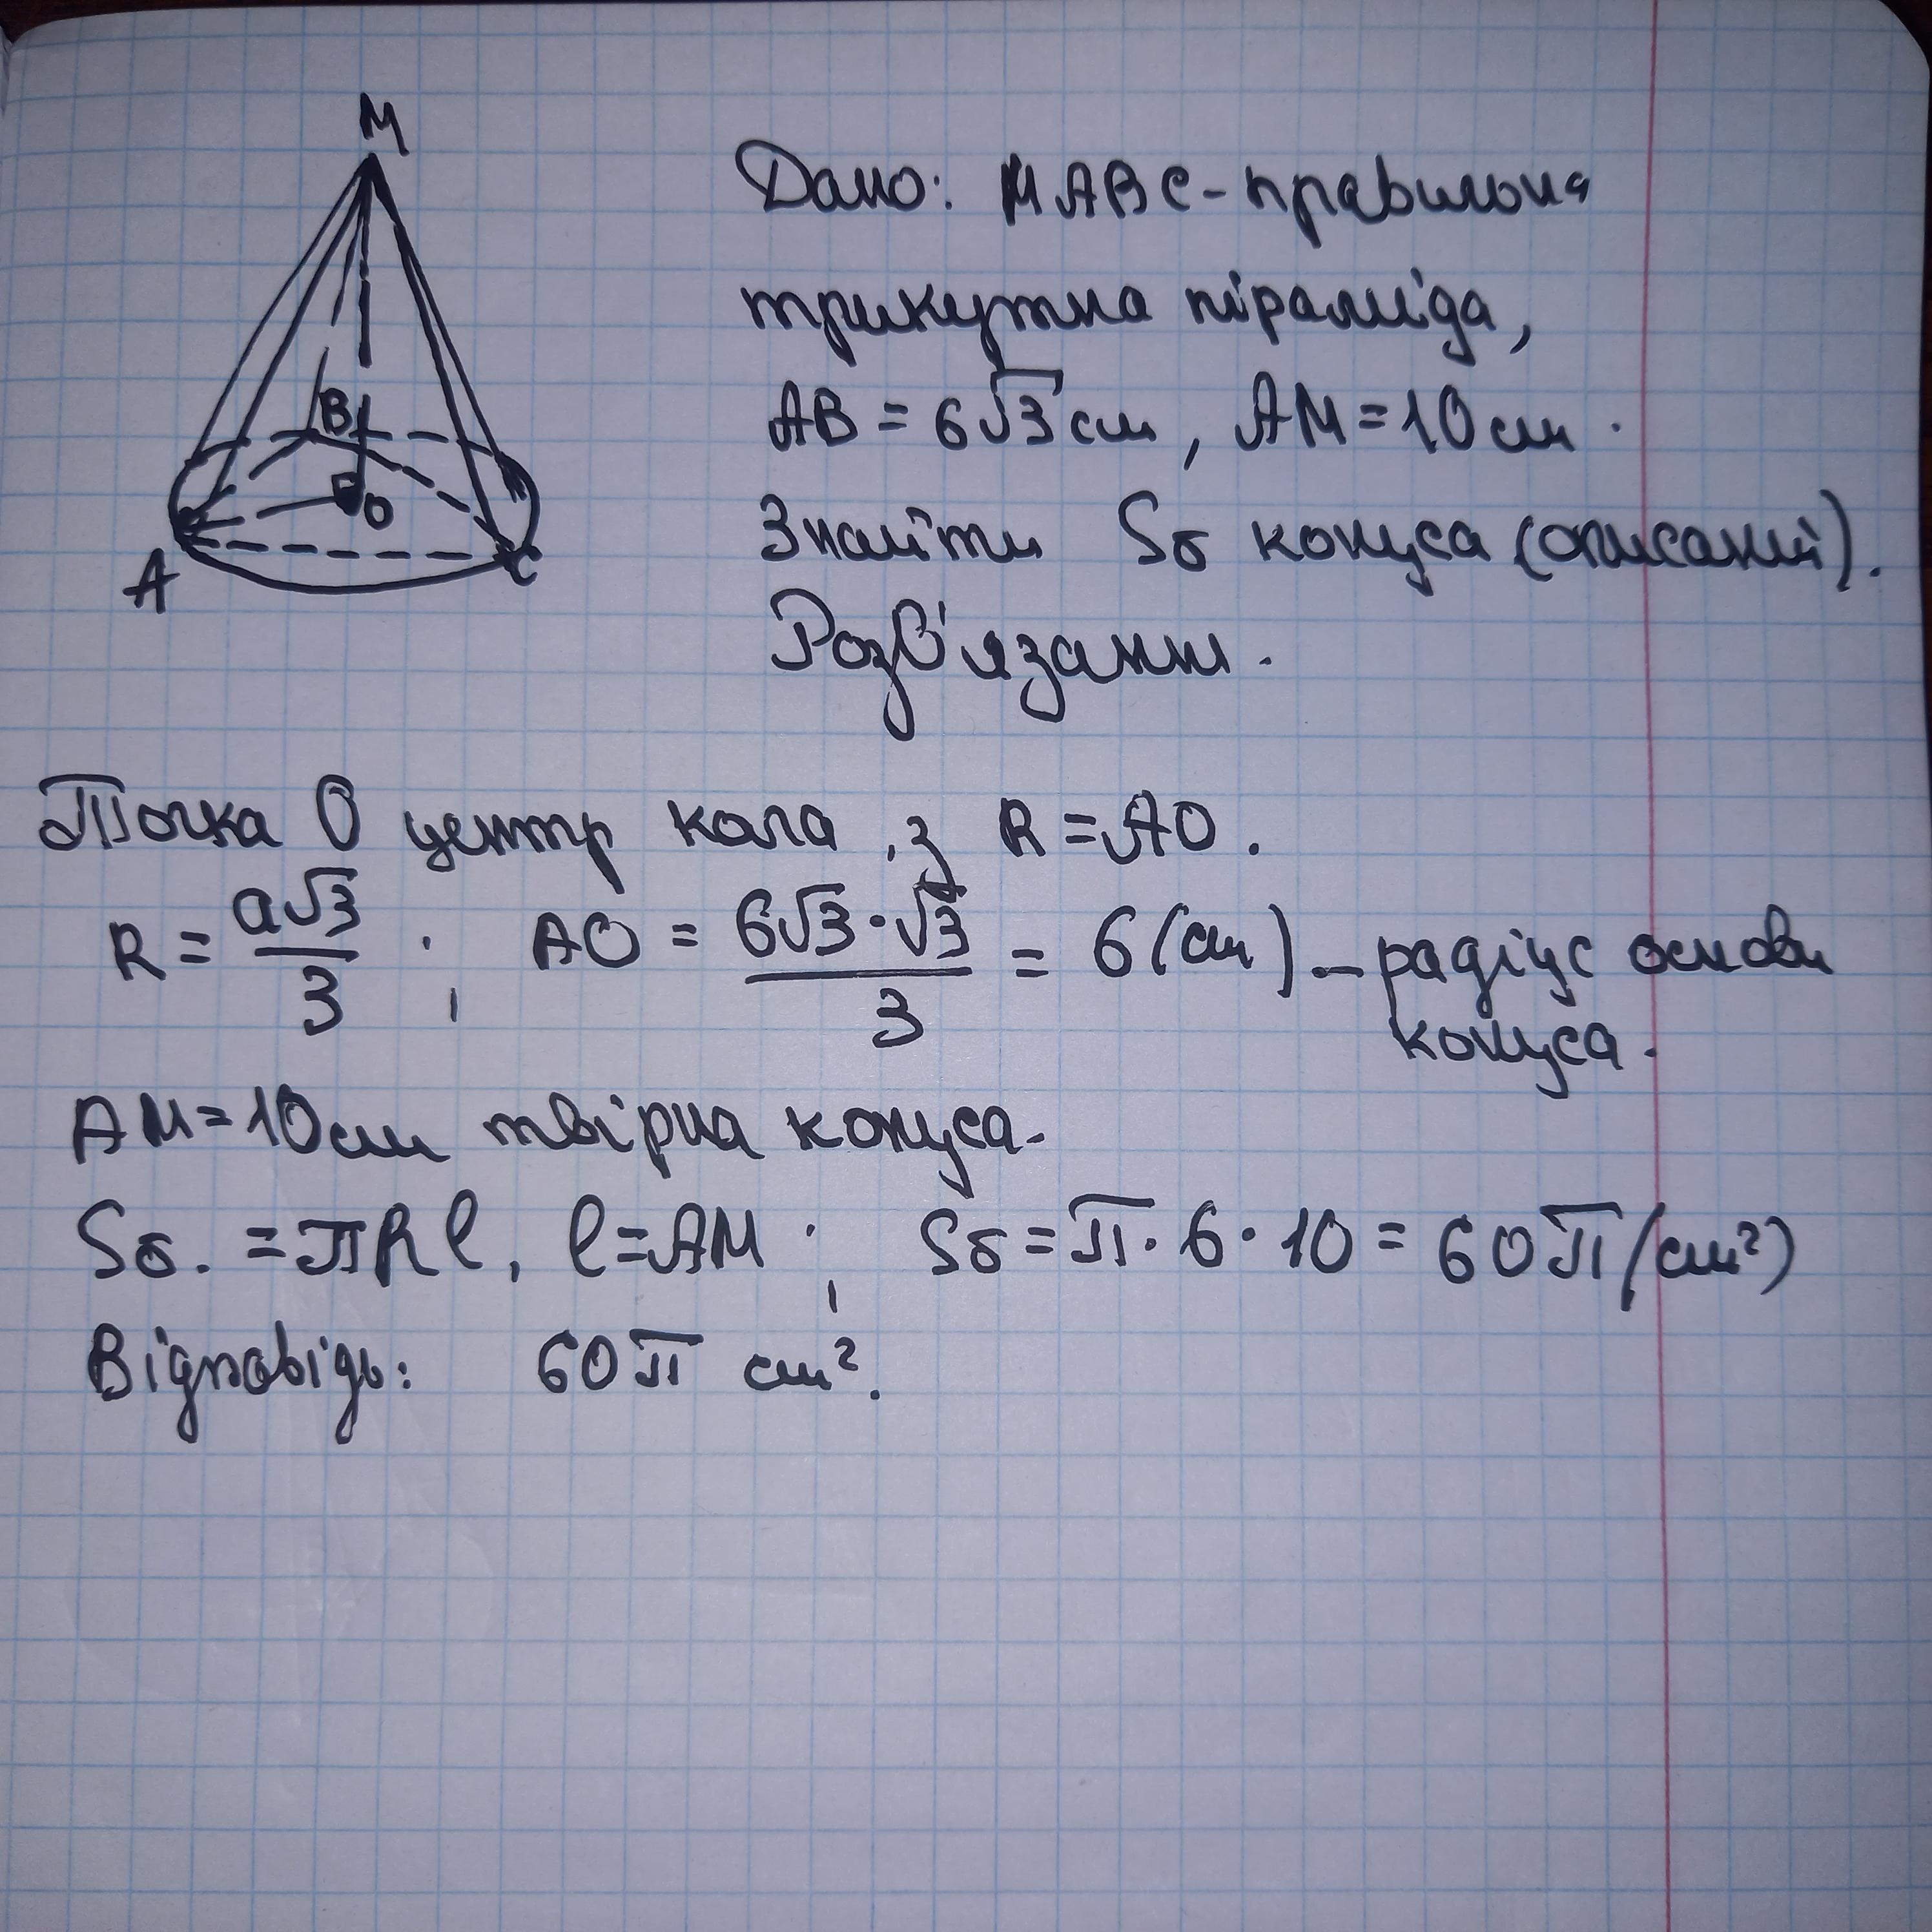 M
B
O
A
C
Дано: MABC - правильна
трикутна піраміда,
AB = 6√3 см, AM = 10 см.
Знайти Sб конуса (описаний).
Розв'язання.
Точка О центр кола, з R = AO.
R = a√3/3; AO = 6√3·√3/3 = 6 (см) - радіус основи
конуса.
AM = 10 см твірна конуса.
Sб. = πRl, l = AM; Sб = π·6·10 = 60π (см²)
Відповідь: 60π см².